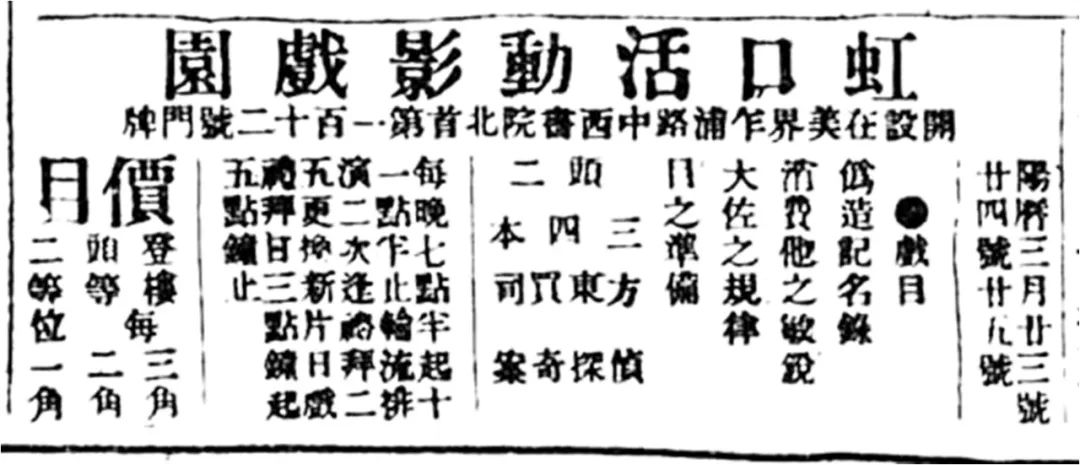 虹口活動影戲園
開設在美界乍浦路中西書院北首第一百十二號門牌
陽曆三月廿三號
廿四號廿五號
●戲目
僞造記名錄
他之敏
大佐之規律
日之準備
頭二
三四本
方東買司
偵探奇案
每晚七點半起十
一點半止輪流排
演二次逢禮拜二
五更換新片日戲
禮拜日三點鐘起
五點鐘止
價目
登樓每三角
頭等二角
二等位一角